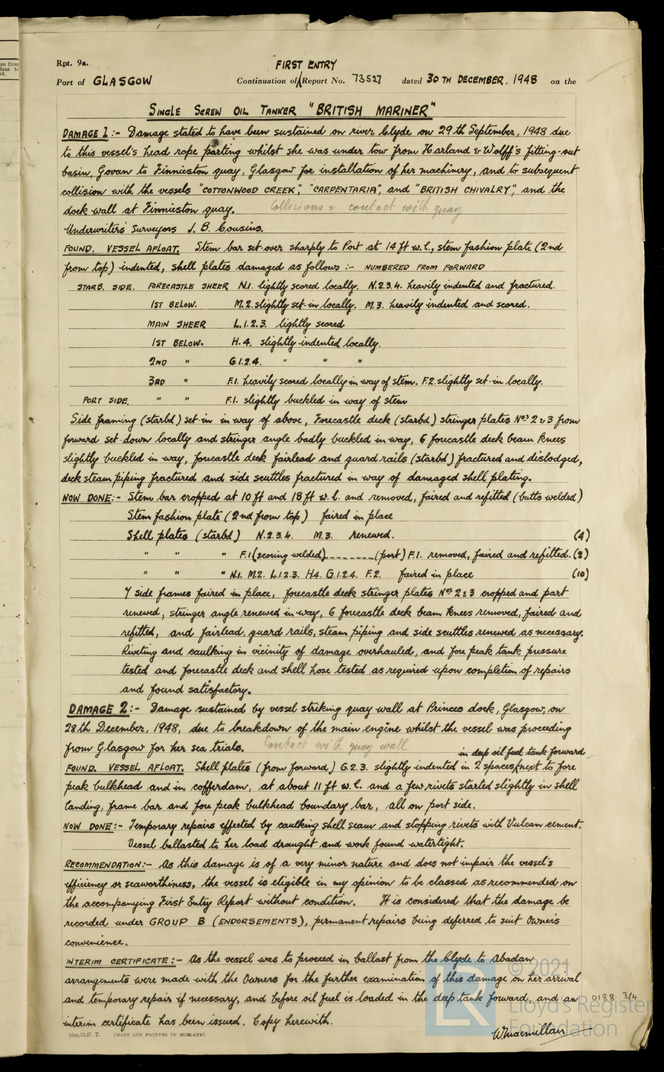 Rpt. 9a.
FIRST ENTRY
Port of GLASGOW Continuation of Report No. 73527 dated 30TH DECEMBER, 1948 on the
SINGLE SCREW OIL TANKER "BRITISH MARINER"
DAMAGE 1:- Damage stated to have been sustained on river Clyde on 29th September, 1948 due
to this vessel's head rope parting whilst she was under tow from Harland & Wolff's fitting-out
basin, Govan to Finnieston quay, Glasgow for installation of her machinery, and to subsequent
collision with the vessels "COTTONWOOD CREEK", "CARPENTARIA", and "BRITISH CHIVALRY", and the
dock wall at Finnieston quay. Collisions & contact with quay
Underwriters Surveyors J. B. Cousins.
FOUND. VESSEL AFLOAT. Stem bar set over sharply to Port at 14 ft w.l., stem fashion plate (2nd
from top) indented, shell plates damaged as follows:- NUMBERED FROM FORWARD
STARB. SIDE. FORECASTLE SHEER N.1. lightly scored locally. N.2.3.4. heavily indented and fractured.
1ST BELOW. M.2. slightly set-in locally. M.3. heavily indented and scored.
MAIN SHEER L.1.2.3. lightly scored
1ST BELOW. H.4. slightly indented locally.
2ND " G.1.2.4. " " "
3RD " F.1. heavily scored locally in way of stem. F.2. slightly set-in locally.
PORT SIDE. " " F.1. slightly buckled in way of stem
Side framing (starbd) set-in in way of above, Forecastle deck (starbd) stringer plates Nos 2 & 3 from
forward set down locally and stringer angle badly buckled in way, 6 forecastle deck beam knees
slightly buckled in way, forecastle deck fairlead and guard rails (starbd) fractured and dislodged,
deck steam piping fractured and side scuttles fractured in way of damaged shell plating.
NOW DONE:- Stem bar cropped at 10 ft and 18 ft w.l. and removed, faired and refitted (butts welded)
Stem fashion plate (2nd from top) faired in place
Shell plates (starbd) N.2.3.4. M.3. renewed. (4)
" " " F.1 (scoring welded) ------- (port) F.1. removed, faired and refitted. (2)
" " " N.1. M.2. L.1.2.3. H.4. G.1.2.4. F.2. faired in place (10)
7 side frames faired in place, forecastle deck stringer plates Nos 2 & 3 cropped and part
renewed, stringer angle renewed in way, 6 forecastle deck beam knees removed, faired and
refitted, and fairlead, guard rails, steam piping and side scuttles renewed as necessary.
Riveting and caulking in vicinity of damage overhauled, and fore peak tank pressure
tested and forecastle deck and shell hose tested as required upon completion of repairs
and found satisfactory.
DAMAGE 2:- Damage sustained by vessel striking quay wall at Princes dock, Glasgow, on
28th December, 1948, due to breakdown of the main engine whilst the vessel was proceeding
from Glasgow for her sea trials. Contact with quay wall
in deep oil fuel tank forward
FOUND. VESSEL AFLOAT. Shell plates (from forward) G.2.3. slightly indented in 2 spaces next to fore
peak bulkhead and in cofferdam, at about 11 ft w.l. and a few rivets started slightly in shell
landing, frame bar and fore peak bulkhead boundary bar, all on port side.
NOW DONE:- Temporary repairs effected by caulking shell seam and stopping rivets with Vulcan cement.
Vessel ballasted to her load draught and work found watertight.
RECOMMENDATION:- As this damage is of a very minor nature and does not impair the vessel's
efficiency or seaworthiness, the vessel is eligible in my opinion to be classed as recommended on
the accompanying First Entry Report without condition. It is considered that the damage be
recorded under GROUP B (ENDORSEMENTS), permanent repairs being deferred to suit Owners
convenience.
INTERIM CERTIFICATE:- As the vessel was to proceed in ballast from the Clyde to Abadan
arrangements were made with the Owners for the further examination of this damage on her arrival
and temporary repair if necessary, and before oil fuel is loaded in the deep tank forward, and an
interim certificate has been issued. Copy herewith.
W Macmillan
(MADE AND PRINTED IN ENGLAND)
0188 3/4
LR
© 2021
Lloyd's Register
Foundation